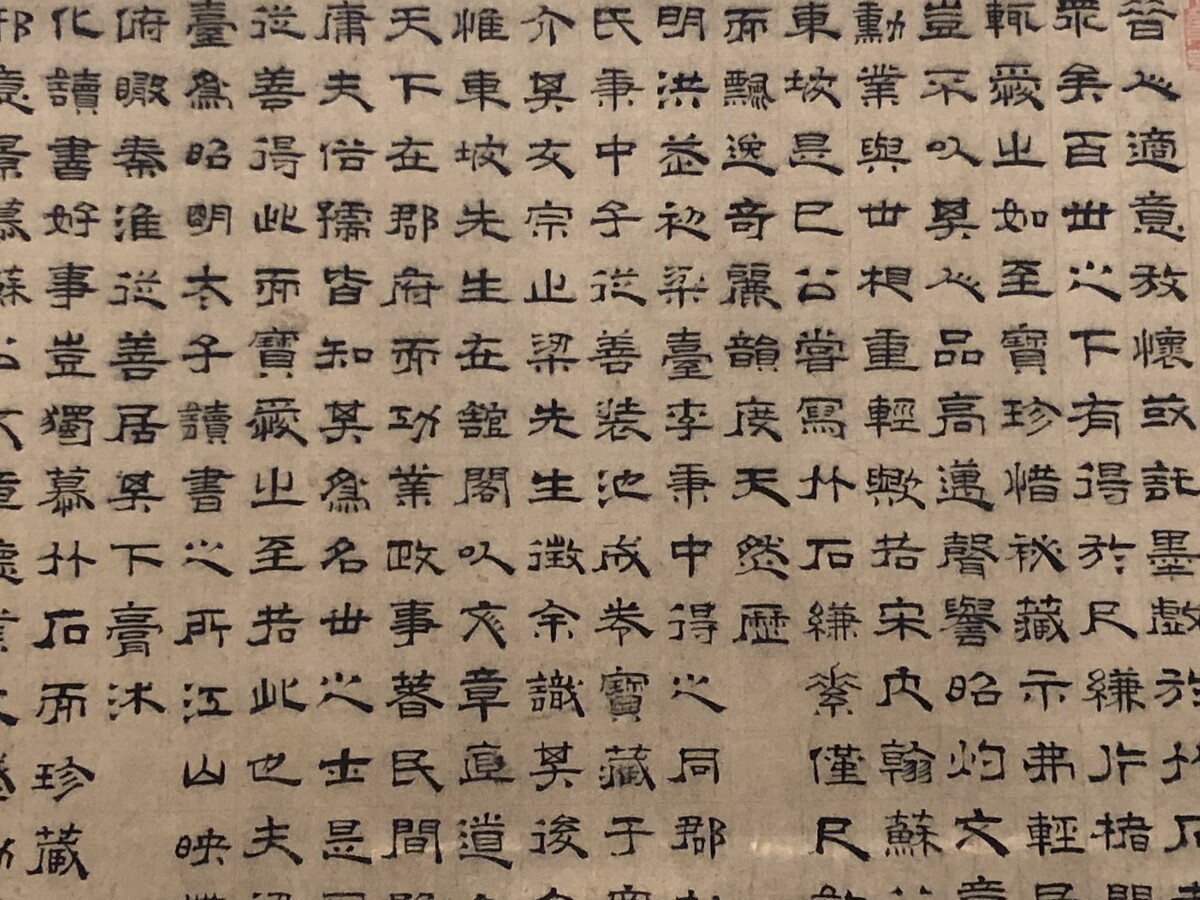 心適意放懷或託墨戲於竹石
眾矣百世之下有得於尺縑作楮間
輒愛之如至寶珍惜秘藏示弗輕
豈不以其心品高邁聲譽昭灼文章
勳業與世相重輕歟若宋內翰蘇
東坡是已公嘗寫竹石縑素僅尺
而飄逸奇麗韻度天然歷
明洪武初梁臺李秉中得之同郡
氏秉中子從善裝池成卷寶藏于
介其友宗止梁先生徵余識其後
惟東坡先生在館閣以文章直道
天下在郡府而功業政事著民間
庸夫俗孺皆知其為名世之士是
從善得此而寶愛之至若此也夫
臺為昭明太子讀書之所江山映
俯瞰秦淮從善居其下膏沐
化讀書好事豈獨慕竹石而珍藏
邪意景慕蘇公文章